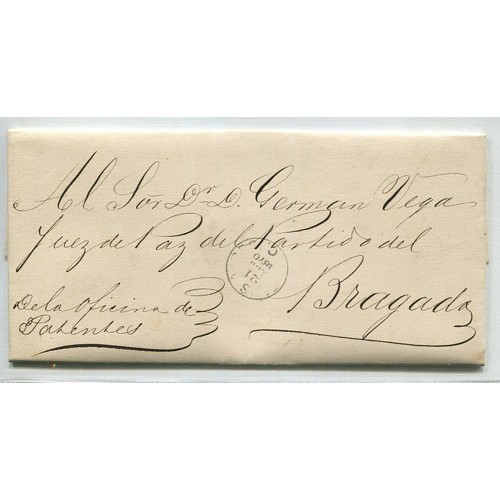 Al Sōr Dr. D. German Vega
Juez de Paz del Partido del
Bragado
De la Oficina de
Patentes
21
1870
C
S